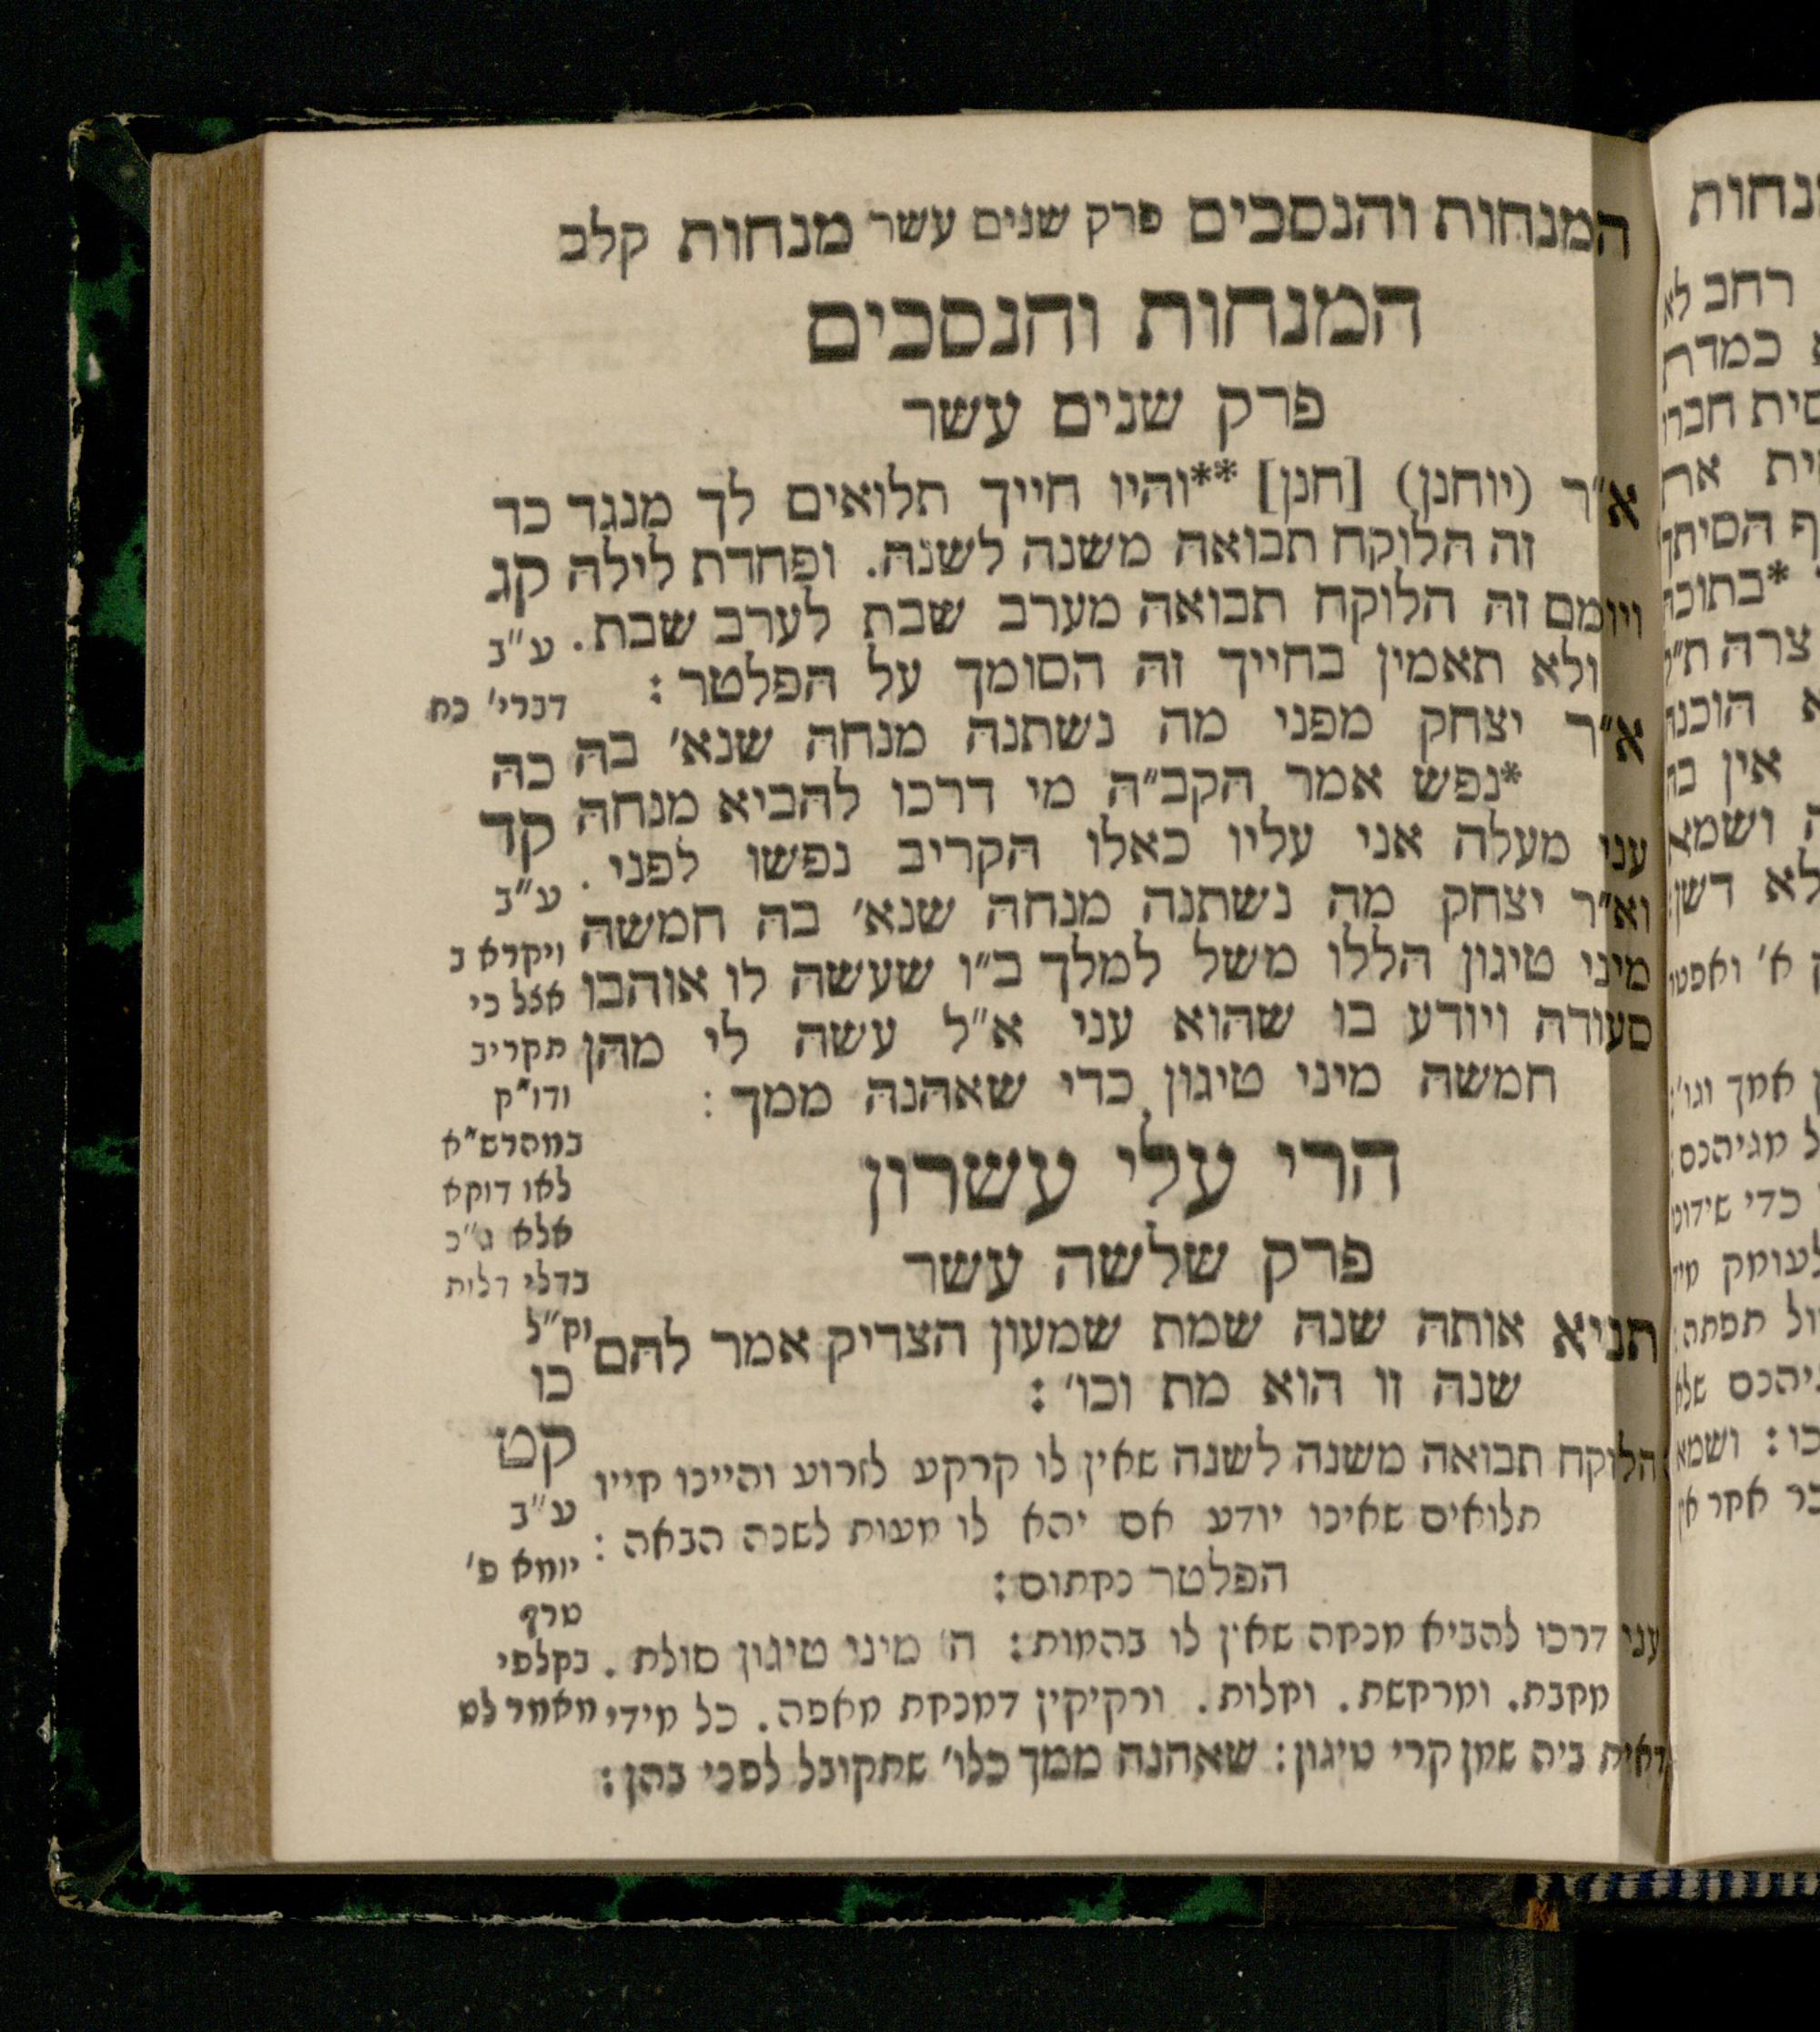 המנחות והנסכים פרק שנים עשר מנחות קלב
המנחות והנסכים
פרק שנים עשר
א"ר (יוחנן) [חנן] **והיו חייך תלואים לך מנגד כד
זה הלוקח תבואה משנה לשנה. ופחדת לילה קג
ויומם זה הלוקח תבואה מערב שבת לערב שבת. ע"ב
ולא תאמין בחייך זה הסומך על הפלטר:
דברי' כח
א"ר יצחק מפני מה נשתנה מנחה שנא' בה כה
*נפש אמר הקב"ה מי דרכו להביא מנחה קד
עני מעלה אני עליו כאלו הקריב נפשו לפני.
ע"ב
וא"ר יצחק מה נשתנה מנחה שנא' בה חמשה
ויקרא ב
מיני טיגון הללו משל למלך ב"ו שעשה לו אוהבו
אצל כי
סעודה ויודע בו שהוא עני א"ל עשה לי מהן
תקריב
חמשה מיני טיגון כדי שאהנה ממך:
ודו"ק
במהרש"א
לאו דוקא
אלא ג"כ
בדלי דלות
וק"ל
הרי עלי עשרון
פרק שלשה עשר
תניא אותה שנה שמת שמעון הצדיק אמר להם
שנה זו הוא מת וכו':
כו
קט
ע"ב
יומא פ'
טרף
בקלפי
מאמר לט
הלוקח תבואה משנה לשנה שאין לו קרקע לזרוע והיינו חייו
תלואים שאינו יודע אם יהא לו מעות לשנה הבאה:
הפלטר נחתום:
עני דרכו להביא מנחה שאין לו בהמות: ה' מיני טיגון סולת.
מחבת. ומרחשת. וחלות. ורקיקין דמנחת מאפה. כל מידי
דאית ביה שמן קרי טיגון: שאהנה ממך כלו' שתקובל לפני בהן:
מנחות
רחב לא
כמדת
סית חברו
ית את
ף הסיתך
*בתוכה
צרה ת"ל
הוכנה
אין בה
ושמא
לא דשן
א' ואפטו
אמך וגו':
מגיהכס:
כדי שידוט
לעומק
תפתה:
שלא
ושמא